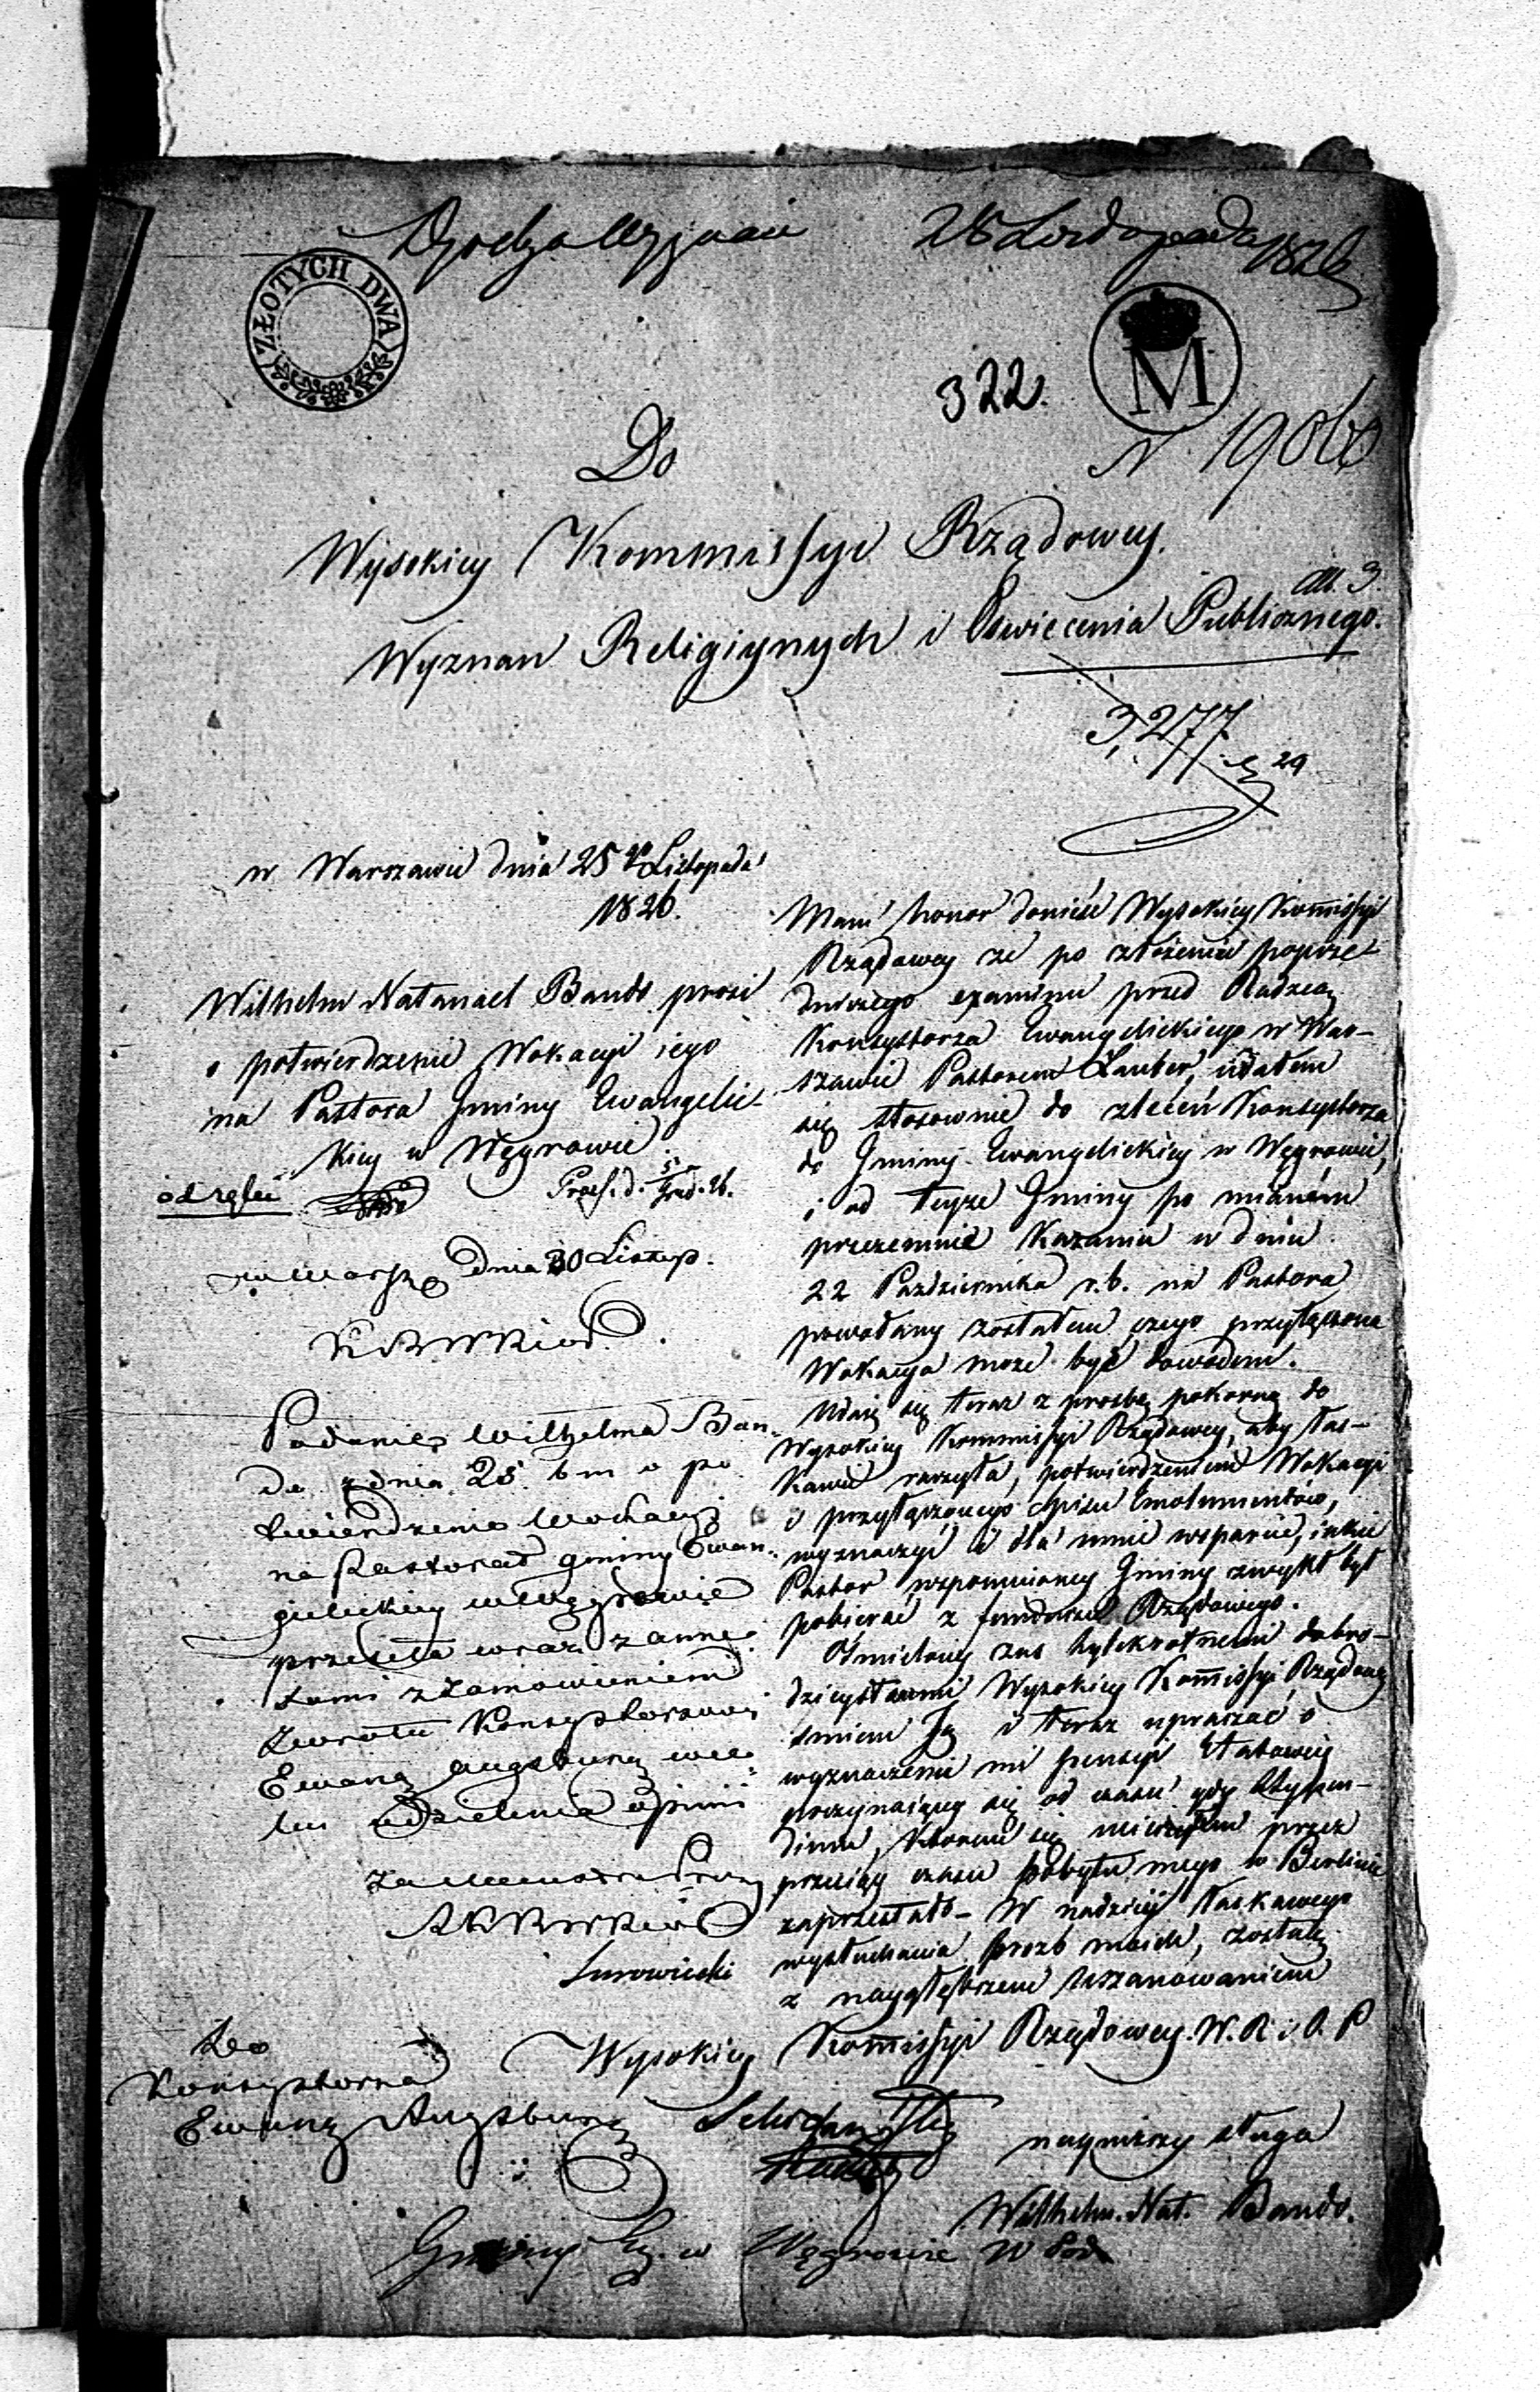 28 Listopada 1826
ZŁOTYCH DWA
M
322.
N. 19060
Do
Wysokiey Kommissyi Rządowey
Wyznan Religiynych i Oswiecenia Publicznego.
3,277
29
w Warszawie dnia 25go Listopada
1826.
Wilhelm Natanael Bando prosi
o potwierdzenie Wokacyi iego
na Pastora Gminy Ewangelic-
kiey w Węgrowie
od ręki
dnia 30 Listop.
Podanie Wilhelma Ban-
do z dnia 25 bm o po-
twierdzenie Wokacyi
na Pastorat gminy Ewan-
gelickiey w Węgrowie
przesela wraz z anne-
xami z zamowieniem
zwrotu Konsystorzowi
Ewang Augsburg we-
lu udzielenia opinii
Surowiecki
Do
Konsystorza
Ewang Augsburg
Mam honor donieść Wysokiey Kom̄issyi
Rządowey ze po złożeniu poprze-
dniczego examinu przed Radzcą
Konsystorza Ewangelickiego w War-
szawie Pastorem Lauber, udałem
się stosownie do zleceń Konsystorza
do Gminy Ewangelickiey w Węgrowie,
i od teyże Gminy po mianem
przezemnie Kazaniu w dniu
22 Pazdziernika r.b. na Pastora
powołany zostałem czego przyłączona
Wokacya może być dowodem.
Udaię się teraz z prosbą pokorną do
Wysokiey Kommissyi Rządowey, aby łas-
kawie raczyła, potwierdzeniem Wokacyi
i przyłączonego Spisu Emolumentów,
wyznaczyć i dla mnie wsparcie, iakie
Pastor wspomnioney Gminy zwykł był
pobierać z funduszu Rządowego.
Osmielony zas tylekrotnemi dobro-
dzieystwami Wysokiey Kom̄issyi Rządowey
smiem Ją i teraz upraszać o
wyznaczenie mi pensyi Etatowey
poczynaiącey się od czasu gdy Stypen-
dium, którem się mieściłem przez
przeciąg czasu pobytu mego w Berlinie
zaprzestało - W nadziei łaskawego
wysłuchania prozb moich, zostaię
z naygłębszem Uszanowaniem
Wysokiey Kom̄issyi Rządowey. W. R. i O. P
nayniższy sługa
Wilhelm. Nat. Bando.
Gminy Ew. w Węgrowie W Pod